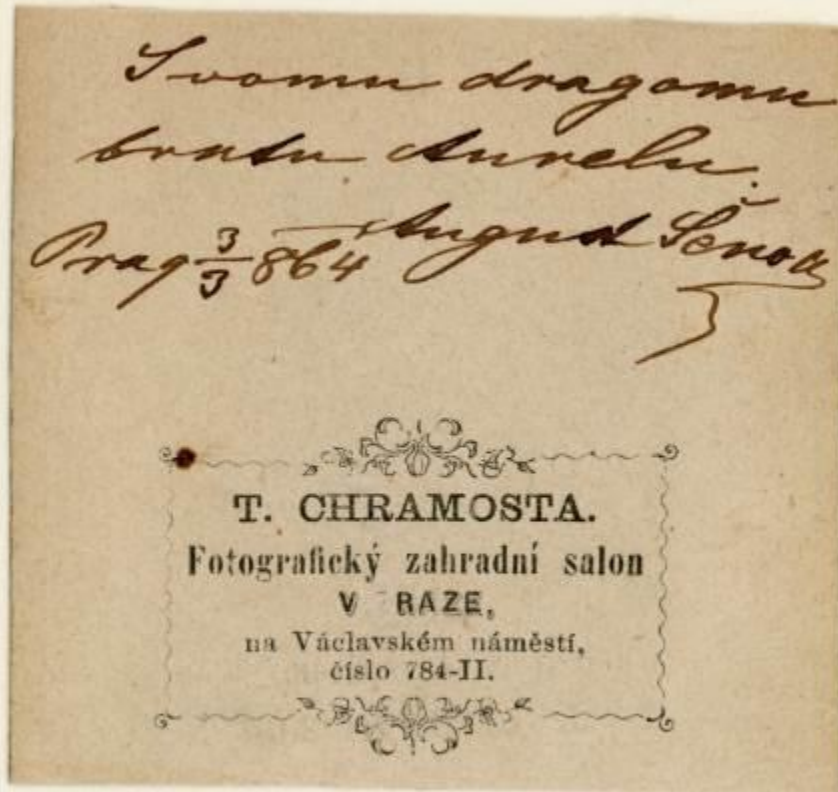 Svomu dragomu
bratu Aurelu.
Prag 3/3 864 August Šenoa
T. CHRAMOSTA.
Fotografický zahradní salon
V RAZE,
na Václavském náměstí,
číslo 784-II.